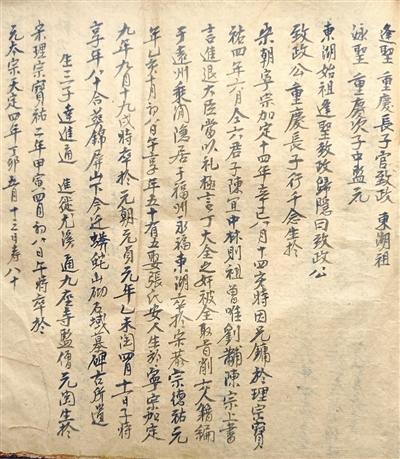 逢聖 重慶長子官致政 東湖祖
泳聖 重慶次子中監元
東湖始祖逢聖致政歸隱曰致政公
致政公重慶長子行千念生於
宋朝寧宗加定十四年辛巳八月十四亥時因元鏞於理宗寶
祐四年六月仝六君子陳宜中林則祖曾唯劉黼陳宗上書
言進退大臣當以礼極言丁大全之奸被全取旨削六人籍編
于遠州乘間隱居于福州永福東湖卒於宋恭宗德祐元
年乙亥十月初八日午享年五十有五娶張氏安人生於寧宗加定
九年九月十九戌時卒於元朝元貞元年乙未閏四月十日子時
享年八十合葬錦屏山下今迁蟒蛇山砌石域墓碑古所遺
生三子達進通 進徙尤溪 通九座寺監僧 元閏生於
宋理宗寶祐二年甲寅四月初八日午時卒於
元泰宗天定四年丁卯五月十三日壽八十